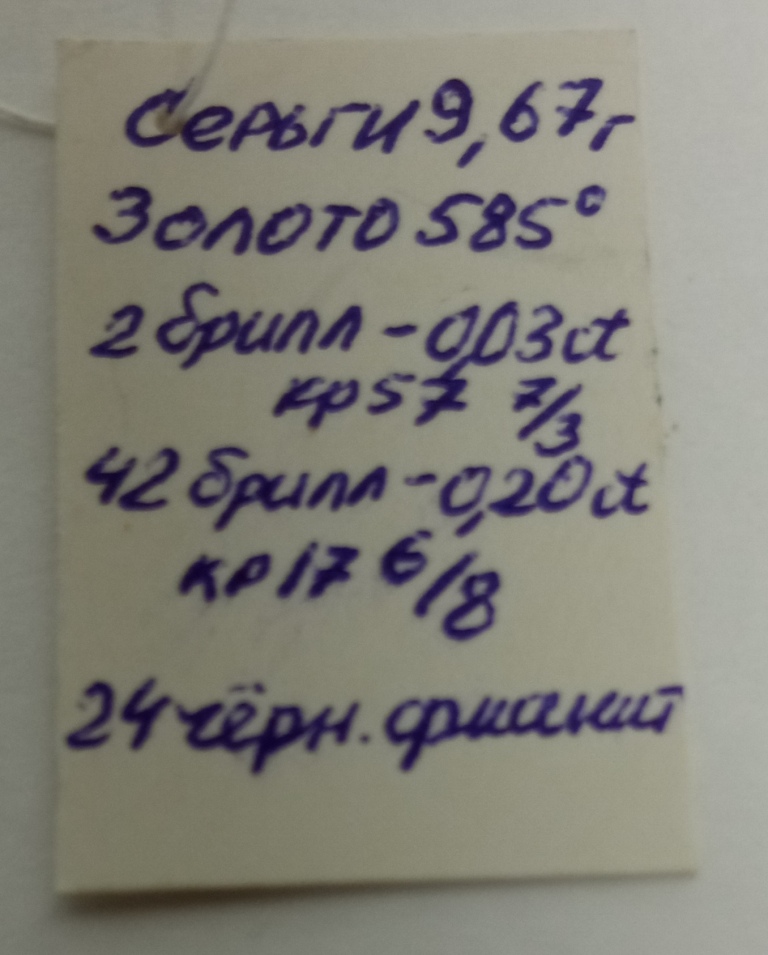 Серьги 9,67г
Золото 585°
2 брилл - 0,03 ct
кр 57 7/3
42 брилл - 0,20 ct
кр 17 6/8
24 чёрн. фианит